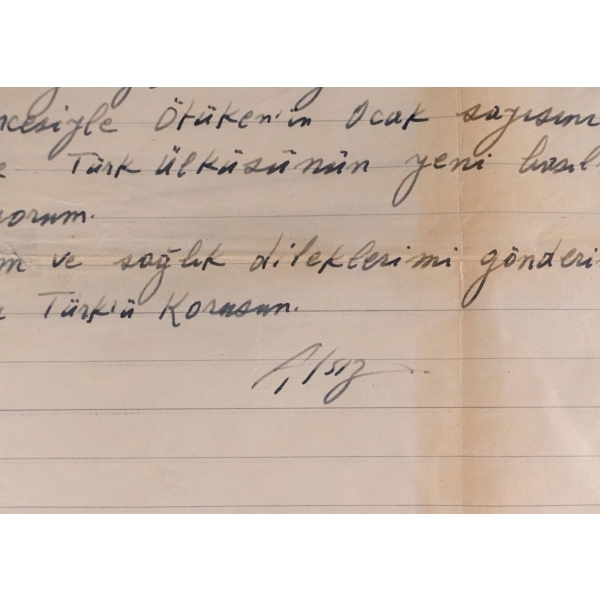 ncesiyle Ötüken'in Ocak sayısını
e Türk Ülküsünün yeni bası
yorum.
m ve sağlık dileklerimi gönderi
Türk'ü Korusun.
Atsız